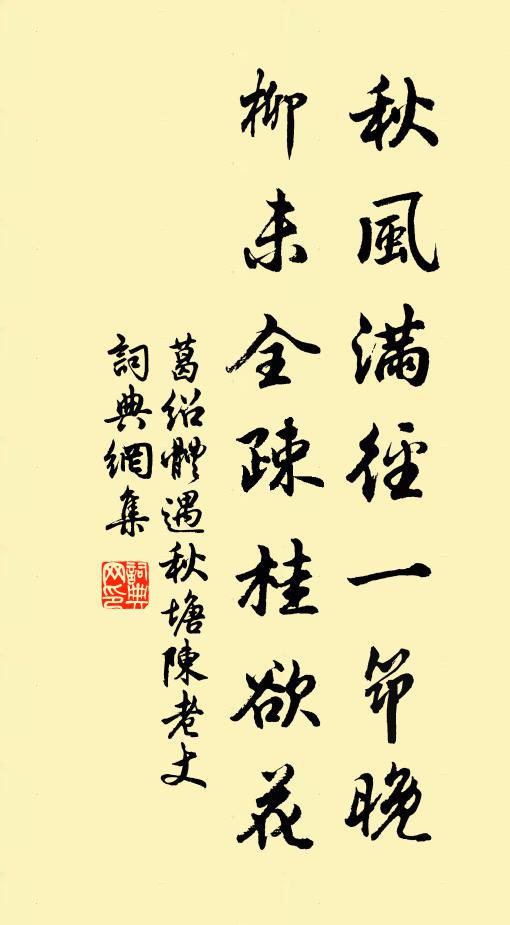 秋風滿徑一笻晚
柳未全疎桂欲花
葛紹體遇秋塘陳老丈
詞典網集
詞典網印